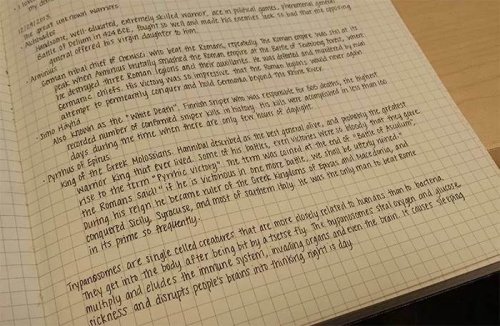 12/19/2015.
the great unknown warriors.
Alcibiades
Handsome, well-educated, extremely skilled warrior, ace in political games, phenomenal general
Battle of Delium in 424 BCE, fought so well and made his enemies look so bad that the opposing
general offered his virgin daughter to him.
Arminius
German tribal chief of Cherusci who beat the Romans, repeatedly. The Roman empire was still at its
peak when Arminius brutally smashed the Roman Empire at the Battle of Teutoburg Forest, where
he destroyed three Roman legions and their auxiliaries. He was defeated and murdered by rival
Germanic chiefs. His victory was so impressive that the Roman Empire would never again
attempt to permanently conquer and hold Germania beyond the Rhine River.
Simo Häyhä
Also known as the "White Death", Finnish sniper who was responsible for 505 deaths, the highest
recorded number of confirmed sniper kills in history. His kills were accomplished in less than 100
days during the time when there are only few hours of daylight.
Pyrrhus of Epirus
King of the Greek Molossians. Hannibal described as the best general alive, and probably the greatest
warrior king that ever lived. Some of his battles, even victories were so bloody that they gave
rise to the term "Pyrrhic victory". The term was coined at the end of "Battle of Asculum",
the Romans said: "if he is victorious in one more battle, we shall be utterly ruined."
During his reign he became ruler of the Greek Kingdoms of Epirus and Macedonia, and
conquered Sicily, Syracuse, and most of southern Italy. He was the only man to beat Rome
in its prime so frequently.
Trypanosomes are single celled creatures that are more closely related to humans than to bacteria.
They get into the body after being bit by a tsetse fly. The trypanosomes steal oxygen and glucose,
multiply and eludes the immune system, invading organs and even the brain. It causes sleeping
sickness and disrupts people's brains into thinking night is day.